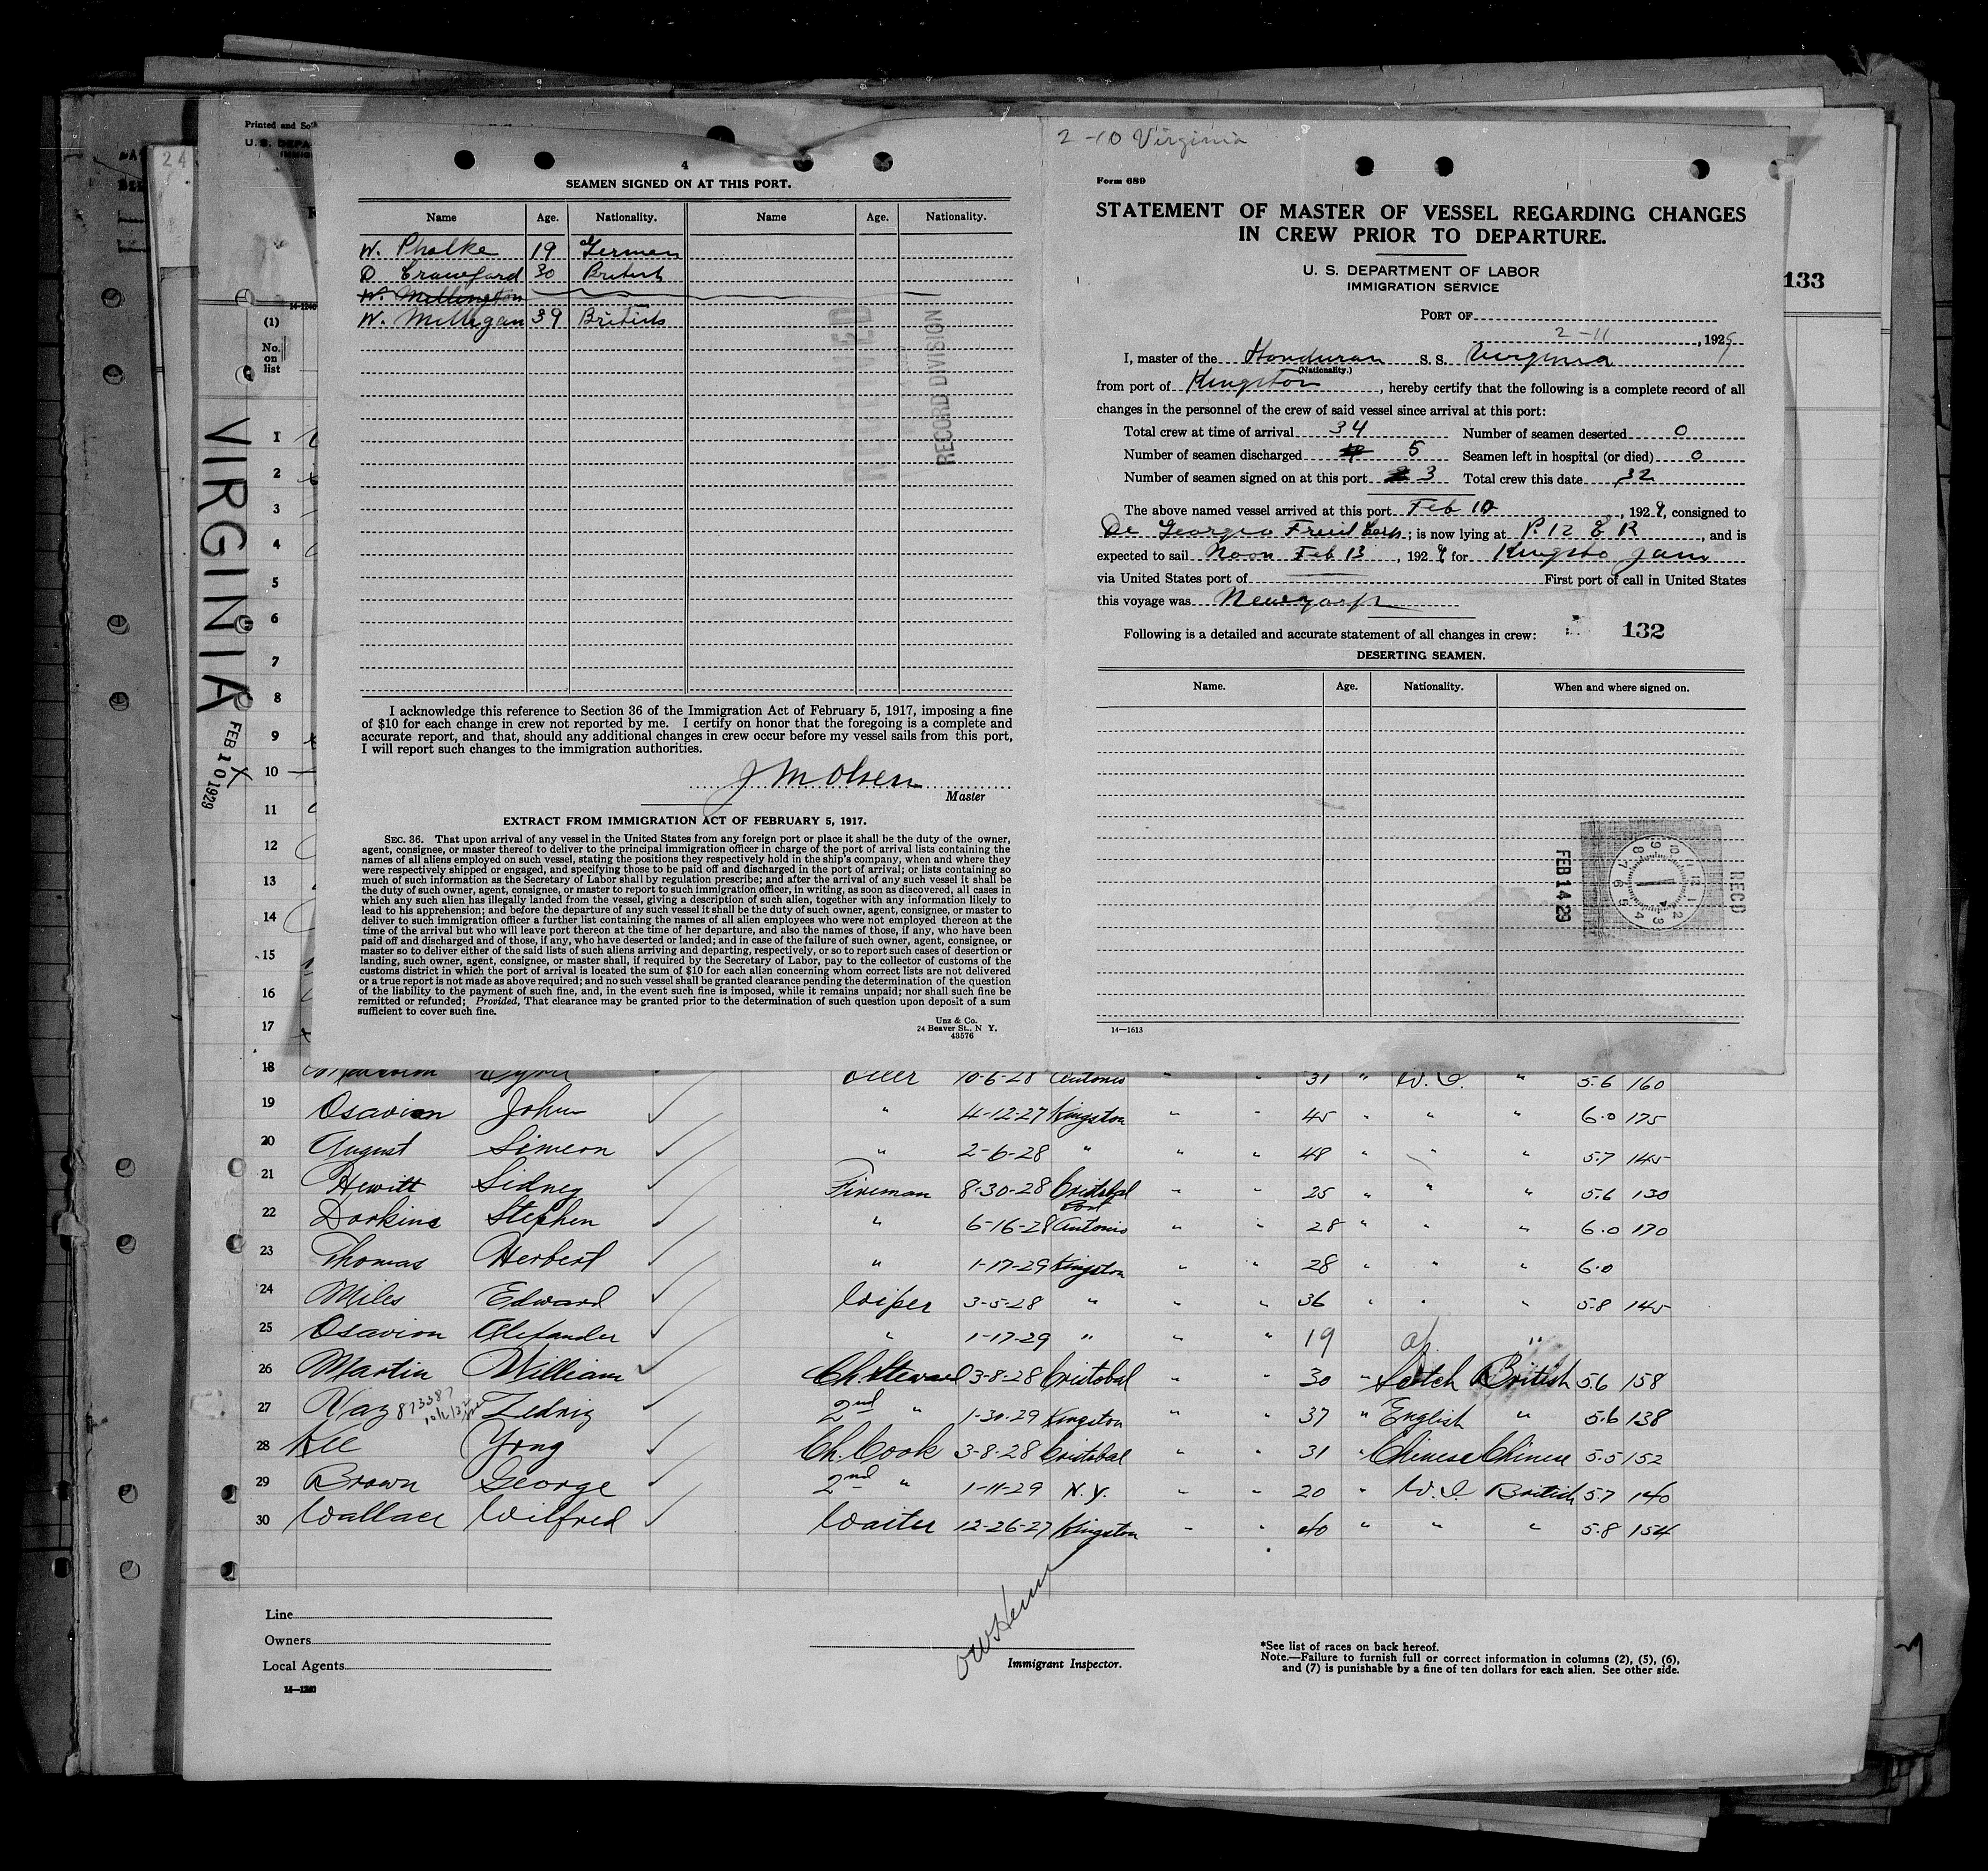 2-10 Virginia
4
SEAMEN SIGNED ON AT THIS PORT.
Name Age. Nationality. Name Age. Nationality.
W. Pholke 19 German
D. Crawford 30 British
W. Millington
W. Milligan 39 British
RECEIVED
RECORD DIVISION
I acknowledge this reference to Section 36 of the Immigration Act of February 5, 1917, imposing a fine
of $10 for each change in crew not reported by me. I certify on honor that the foregoing is a complete and
accurate report, and that, should any additional changes in crew occur before my vessel sails from this port,
I will report such changes to the immigration authorities.
J M Olsen
Master
EXTRACT FROM IMMIGRATION ACT OF FEBRUARY 5, 1917.
SEC. 36. That upon arrival of any vessel in the United States from any foreign port or place it shall be the duty of the owner,
agent, consignee, or master thereof to deliver to the principal immigration officer in charge of the port of arrival lists containing the
names of all aliens employed on such vessel, stating the positions they respectively hold in the ship's company, when and where they
were respectively shipped or engaged, and specifying those to be paid off and discharged in the port of arrival; or lists containing so
much of such information as the Secretary of Labor shall by regulation prescribe; and after the arrival of any such vessel it shall be
the duty of such owner, agent, consignee, or master to report to such immigration officer, in writing, as soon as discovered, all cases in
which any such alien has illegally landed from the vessel, giving a description of such alien, together with any information likely to
lead to his apprehension; and before the departure of any such vessel it shall be the duty of such owner, agent, consignee, or master to
deliver to such immigration officer a further list containing the names of all alien employees who were not employed thereon at the
time of the arrival but who will leave port thereon at the time of her departure, and also the names of those, if any, who have been
paid off and discharged and of those, if any, who have deserted or landed; and in case of the failure of such owner, agent, consignee, or
master so to deliver either of the said lists of such aliens arriving and departing, respectively, or so to report such cases of desertion or
landing, such owner, agent, consignee, or master shall, if required by the Secretary of Labor, pay to the collector of customs of the
customs district in which the port of arrival is located the sum of $10 for each alien concerning whom correct lists are not delivered
or a true report is not made as above required; and no such vessel shall be granted clearance pending the determination of the question
of the liability to the payment of such fine, and, in the event such fine is imposed, while it remains unpaid; nor shall such fine be
remitted or refunded; Provided, That clearance may be granted prior to the determination of such question upon deposit of a sum
sufficient to cover such fine.
Unz & Co.
24 Beaver St., N Y.
43576
Form 689
STATEMENT OF MASTER OF VESSEL REGARDING CHANGES
IN CREW PRIOR TO DEPARTURE.
U. S. DEPARTMENT OF LABOR
IMMIGRATION SERVICE
PORT OF
2-11, 1929
I, master of the Honduran S. S. Virginia
(Nationality.)
from port of Kingston, hereby certify that the following is a complete record of all
changes in the personnel of the crew of said vessel since arrival at this port:
Total crew at time of arrival 34 Number of seamen deserted 0
Number of seamen discharged 5 Seamen left in hospital (or died) 0
Number of seamen signed on at this port 3 Total crew this date 32
The above named vessel arrived at this port Feb 10, 1929, consigned to
De Georgeo ; is now lying at P. 12 E R, and is
expected to sail Noon Feb 13, 1929 for Kingsto Jam
via United States port of First port of call in United States
this voyage was Newyork
Following is a detailed and accurate statement of all changes in crew: 132
DESERTING SEAMEN.
Name. Age. Nationality. When and where signed on.
FEB 14 29
RECD
14—1613
133
24
Printed and
U. S. DEPA
IMMIG
14-1240
(1)
No.
on
list
VIRGINIA
FEB 10 1929
X
1
2
3
4
5
6
7
8
9
10
11
12
13
14
15
16
17
18 Oiler 10-6-28 Antonio " " 31 " W.I. " 5.6 160
19 Osavion John " 4-12-27 Kingston " " 45 " " " 6.0 175
20 August Simeon " 2-6-28 " " " 48 " " " 5.7 145
21 Hewitt Sidney Fireman 8-30-28 Cristobal " " 25 " " " 5.6 130
22 Dorkins Stephen " 6-16-28 Port Antonio " " 28 " " " 6.0 170
23 Thomas Herbert " 1-17-29 Kingston " " 28 " " " 6.0
24 Miles Edward Wiper 3-5-28 " " " 36 " " " 5.8 145
25 Osavion Alexander " 1-17-29 " " " 19 af "
26 Martin William Ch. Steward 3-8-28 Cristobal " " 30 " Scotch British 5.6 158
27 Vaz 873387 Zedrig 2nd " 1-30-29 Kingston " " 37 " English " 5.6 138
28 Kee Yong Ch. Cook 3-8-28 Cristobal " " 31 " Chinese Chinese 5.5 152
29 Brown George 2nd " 1-11-29 N.Y. " " 20 " W.I. British 5.7 140
30 Wallace Wilfred Waiter 12-26-27 Kingston " " 40 " " " 5.8 154
Line
Owners
Local Agents
14—1240
Immigrant Inspector.
*See list of races on back hereof.
Note.—Failure to furnish full or correct information in columns (2), (5), (6),
and (7) is punishable by a fine of ten dollars for each alien. See other side.